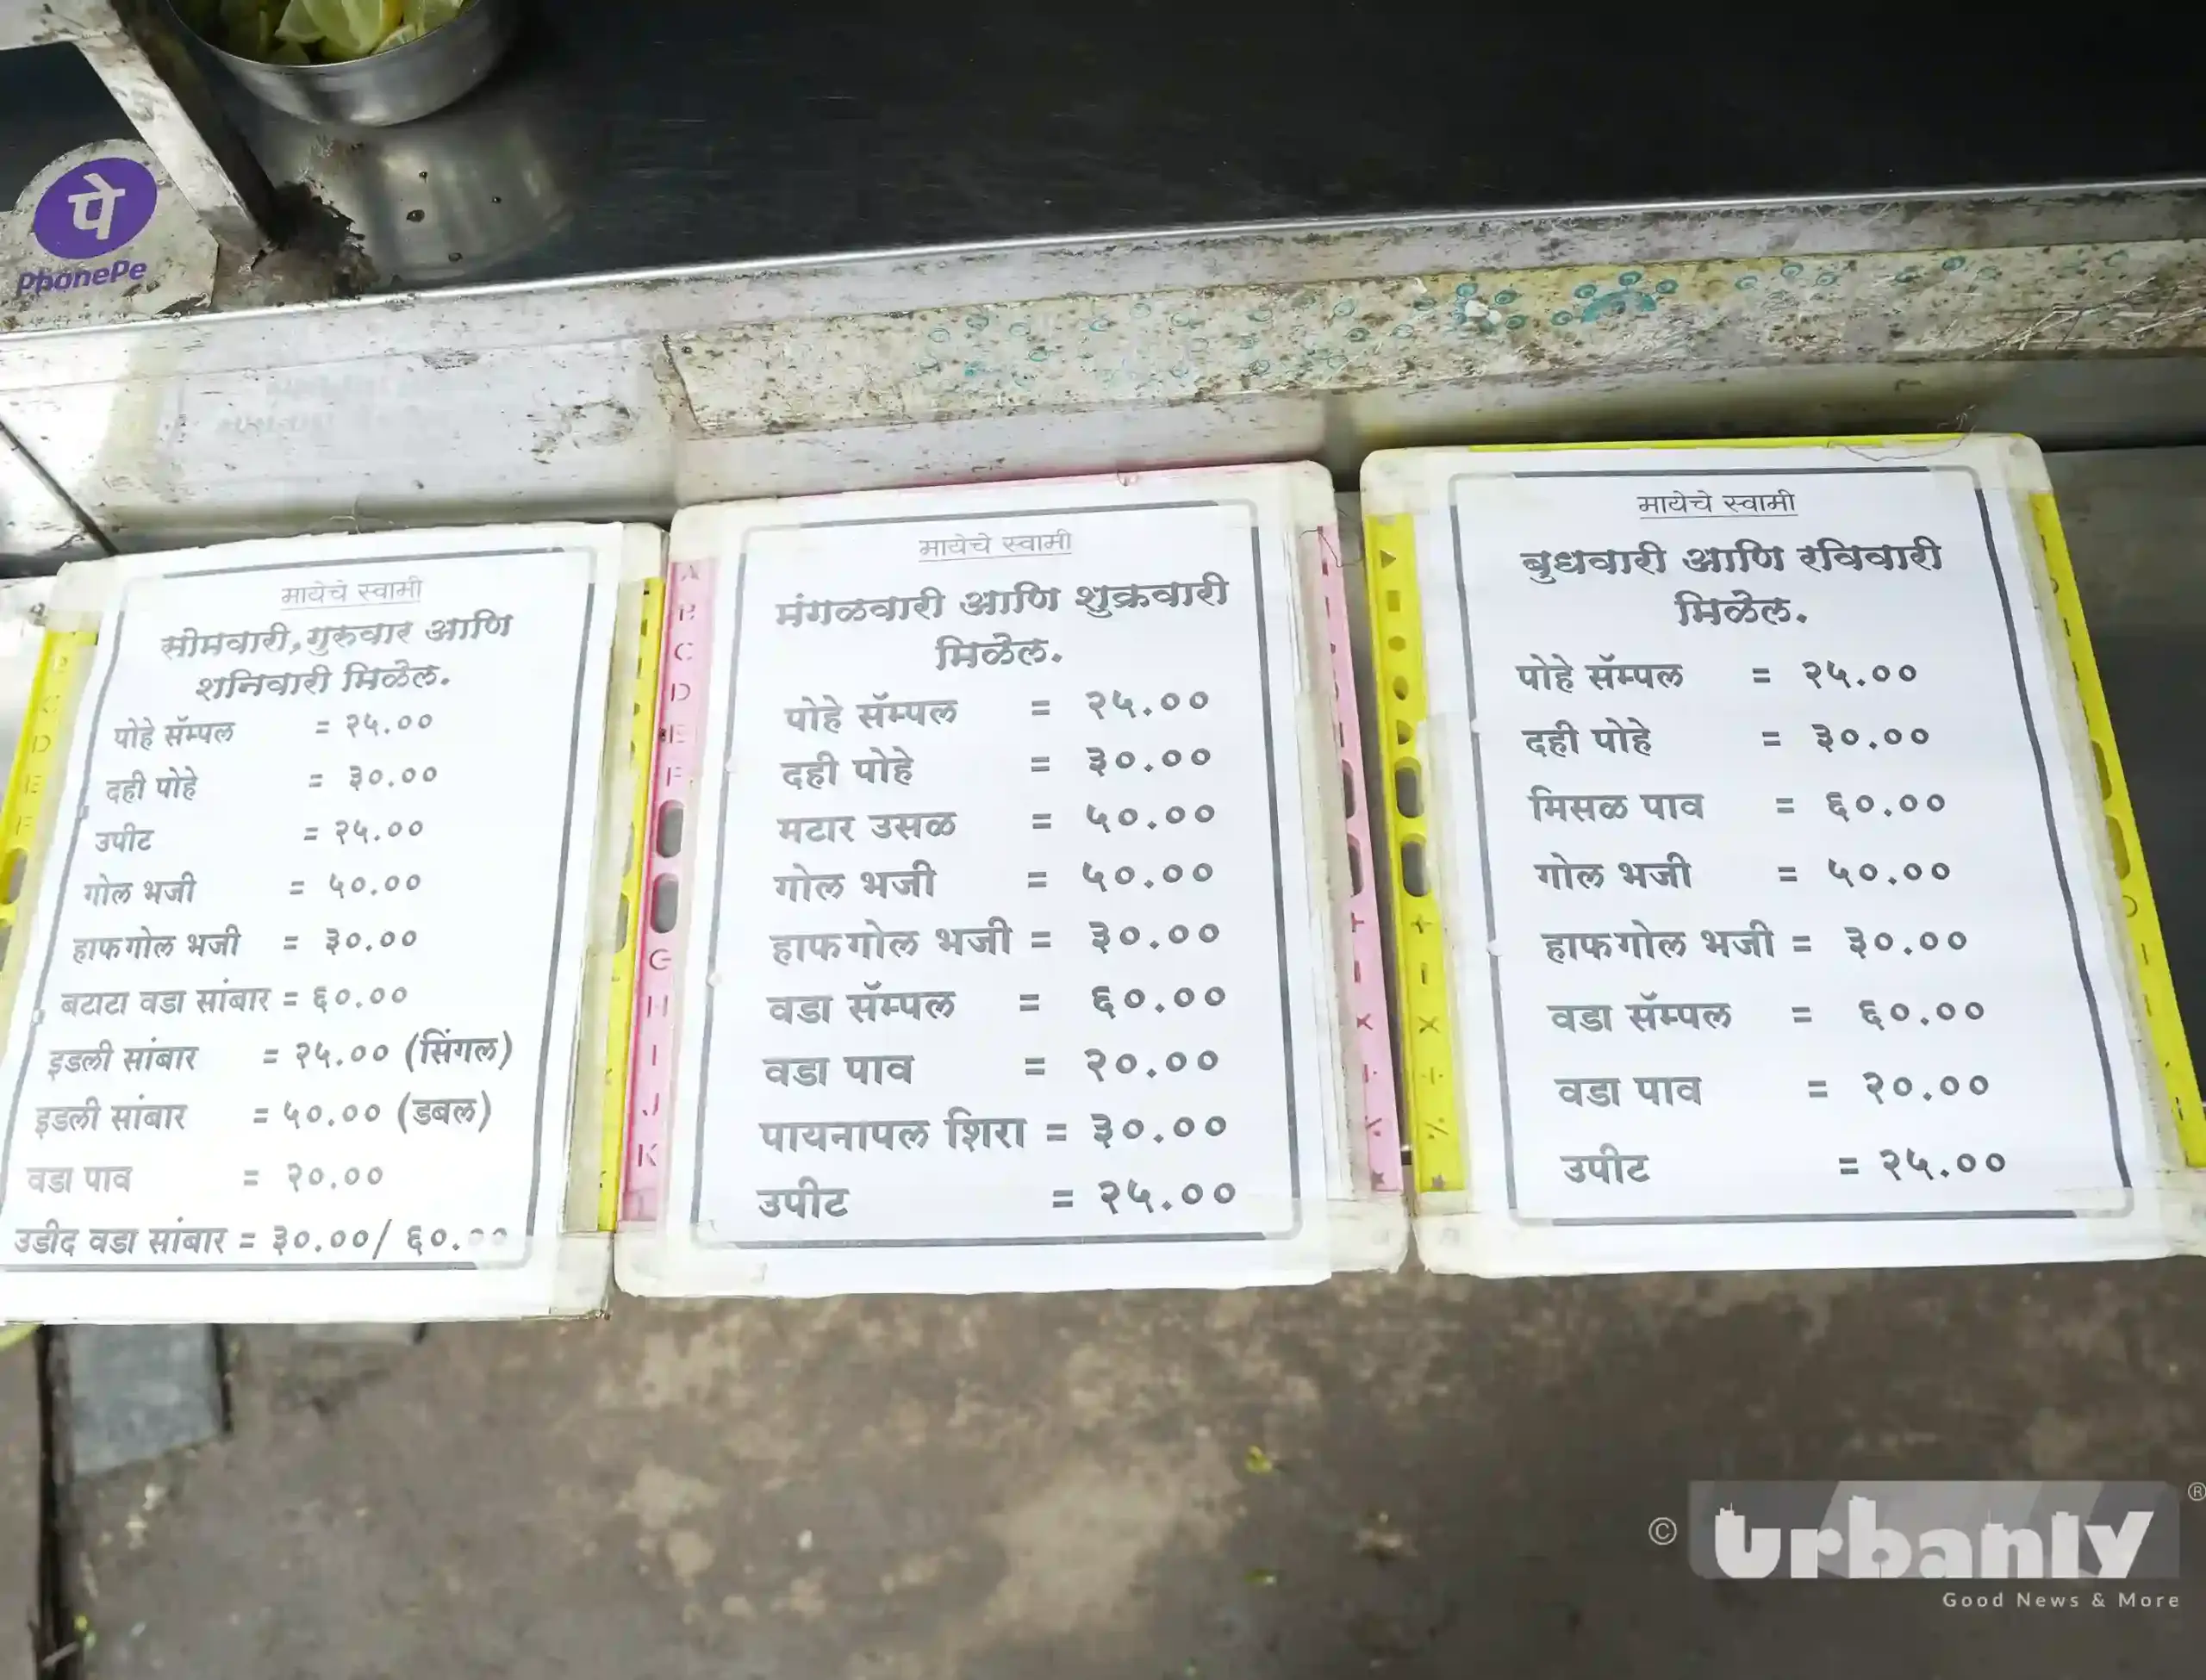 पे
PhonePe
मायेचे स्वामी
सोमवारी,गुरुवार आणि
शनिवारी मिळेल.
पोहे सॅम्पल = २५.००
दही पोहे = ३०.००
उपीट = २५.००
गोल भजी = ५०.००
हाफगोल भजी = ३०.००
बटाटा वडा सांबार = ६०.००
इडली सांबार = २५.०० (सिंगल)
इडली सांबार = ५०.०० (डबल)
वडा पाव = २०.००
उडीद वडा सांबार = ३०.००/ ६०.००
मायेचे स्वामी
मंगळवारी आणि शुक्रवारी
मिळेल.
पोहे सॅम्पल = २५.००
दही पोहे = ३०.००
मटार उसळ = ५०.००
गोल भजी = ५०.००
हाफगोल भजी = ३०.००
वडा सॅम्पल = ६०.००
वडा पाव = २०.००
पायनापल शिरा = ३०.००
उपीट = २५.००
मायेचे स्वामी
बुधवारी आणि रविवारी
मिळेल.
पोहे सॅम्पल = २५.००
दही पोहे = ३०.००
मिसळ पाव = ६०.००
गोल भजी = ५०.००
हाफगोल भजी = ३०.००
वडा सॅम्पल = ६०.००
वडा पाव = २०.००
उपीट = २५.००
© urbanly ®
Good News & More